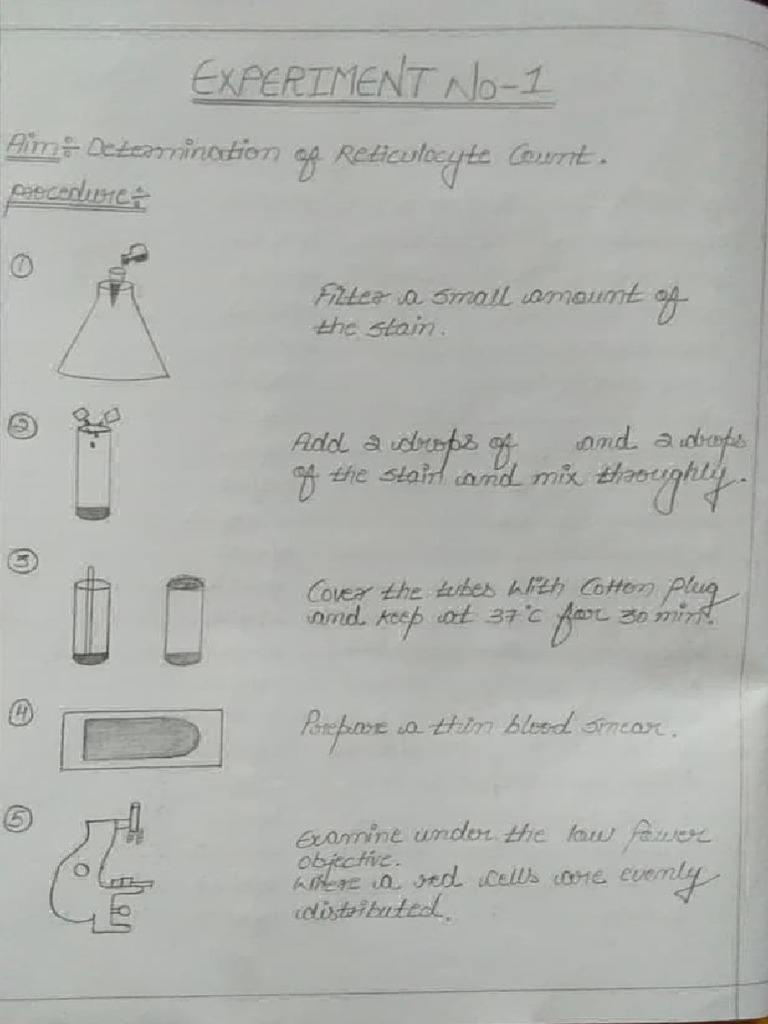 EXPERIMENT No-1
Aim÷ Determination of Reticulocyte Count.
procedure÷
1 Filter a small amount of
the stain.
2 Add 2 drops of and 2 drops
of the stain and mix throughly.
3 Cover the tubes With Cotton plug
and keep at 37°C for 30 min.
4 Prepare a thin blood smear.
5 Examine under the low power
objective.
Where a red cells are evenly
distributed.